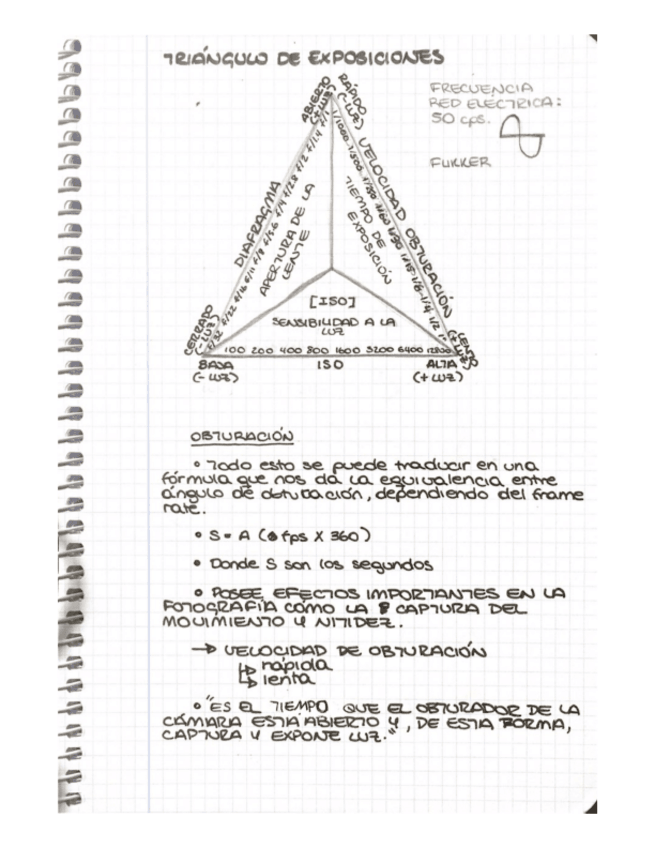 TRIÁNGULO DE EXPOSICIONES
FRECUENCIA
RED ELÉCTRICA:
50 cps.
FLIKKER
ABIERTO
(+LUZ)
RÁPIDO
(-LUZ)
DIAFRAGMA
f/32 f/22 f/16 f/11 f/8 f/5.6 f/4 f/2.8 f/2 f/1.4 f/1
APERTURA DE LA
LENTE
VELOCIDAD OBTURACIÓN
1/1000 1/500 1/250 1/60 1/30 1/15 1/8 1/4 1/2 1
TIEMPO DE
EXPOSICIÓN
[ISO]
SENSIBILIDAD A LA
LUZ
CERRADO
(-LUZ)
LENTO
(+LUZ)
100 200 400 800 1600 3200 6400 12800
BAJA
(-LUZ)
ISO
ALTA
(+LUZ)
OBTURACIÓN
• Todo esto se puede traducir en una
fórmula que nos da la equivalencia entre
ángulo de obturación, dependiendo del frame
rate.
• S = A (fps X 360)
• Donde S son los segundos
• POSEE EFECTOS IMPORTANTES EN LA
FOTOGRAFÍA COMO LA CAPTURA DEL
MOVIMIENTO Y NITIDEZ.
→ VELOCIDAD DE OBTURACIÓN
↳ rápida
↳ lenta
• "ES EL TIEMPO QUE EL OBTURADOR DE LA
CÁMARA ESTÁ ABIERTO Y, DE ESTA FORMA,
CAPTURA Y EXPONE LUZ."